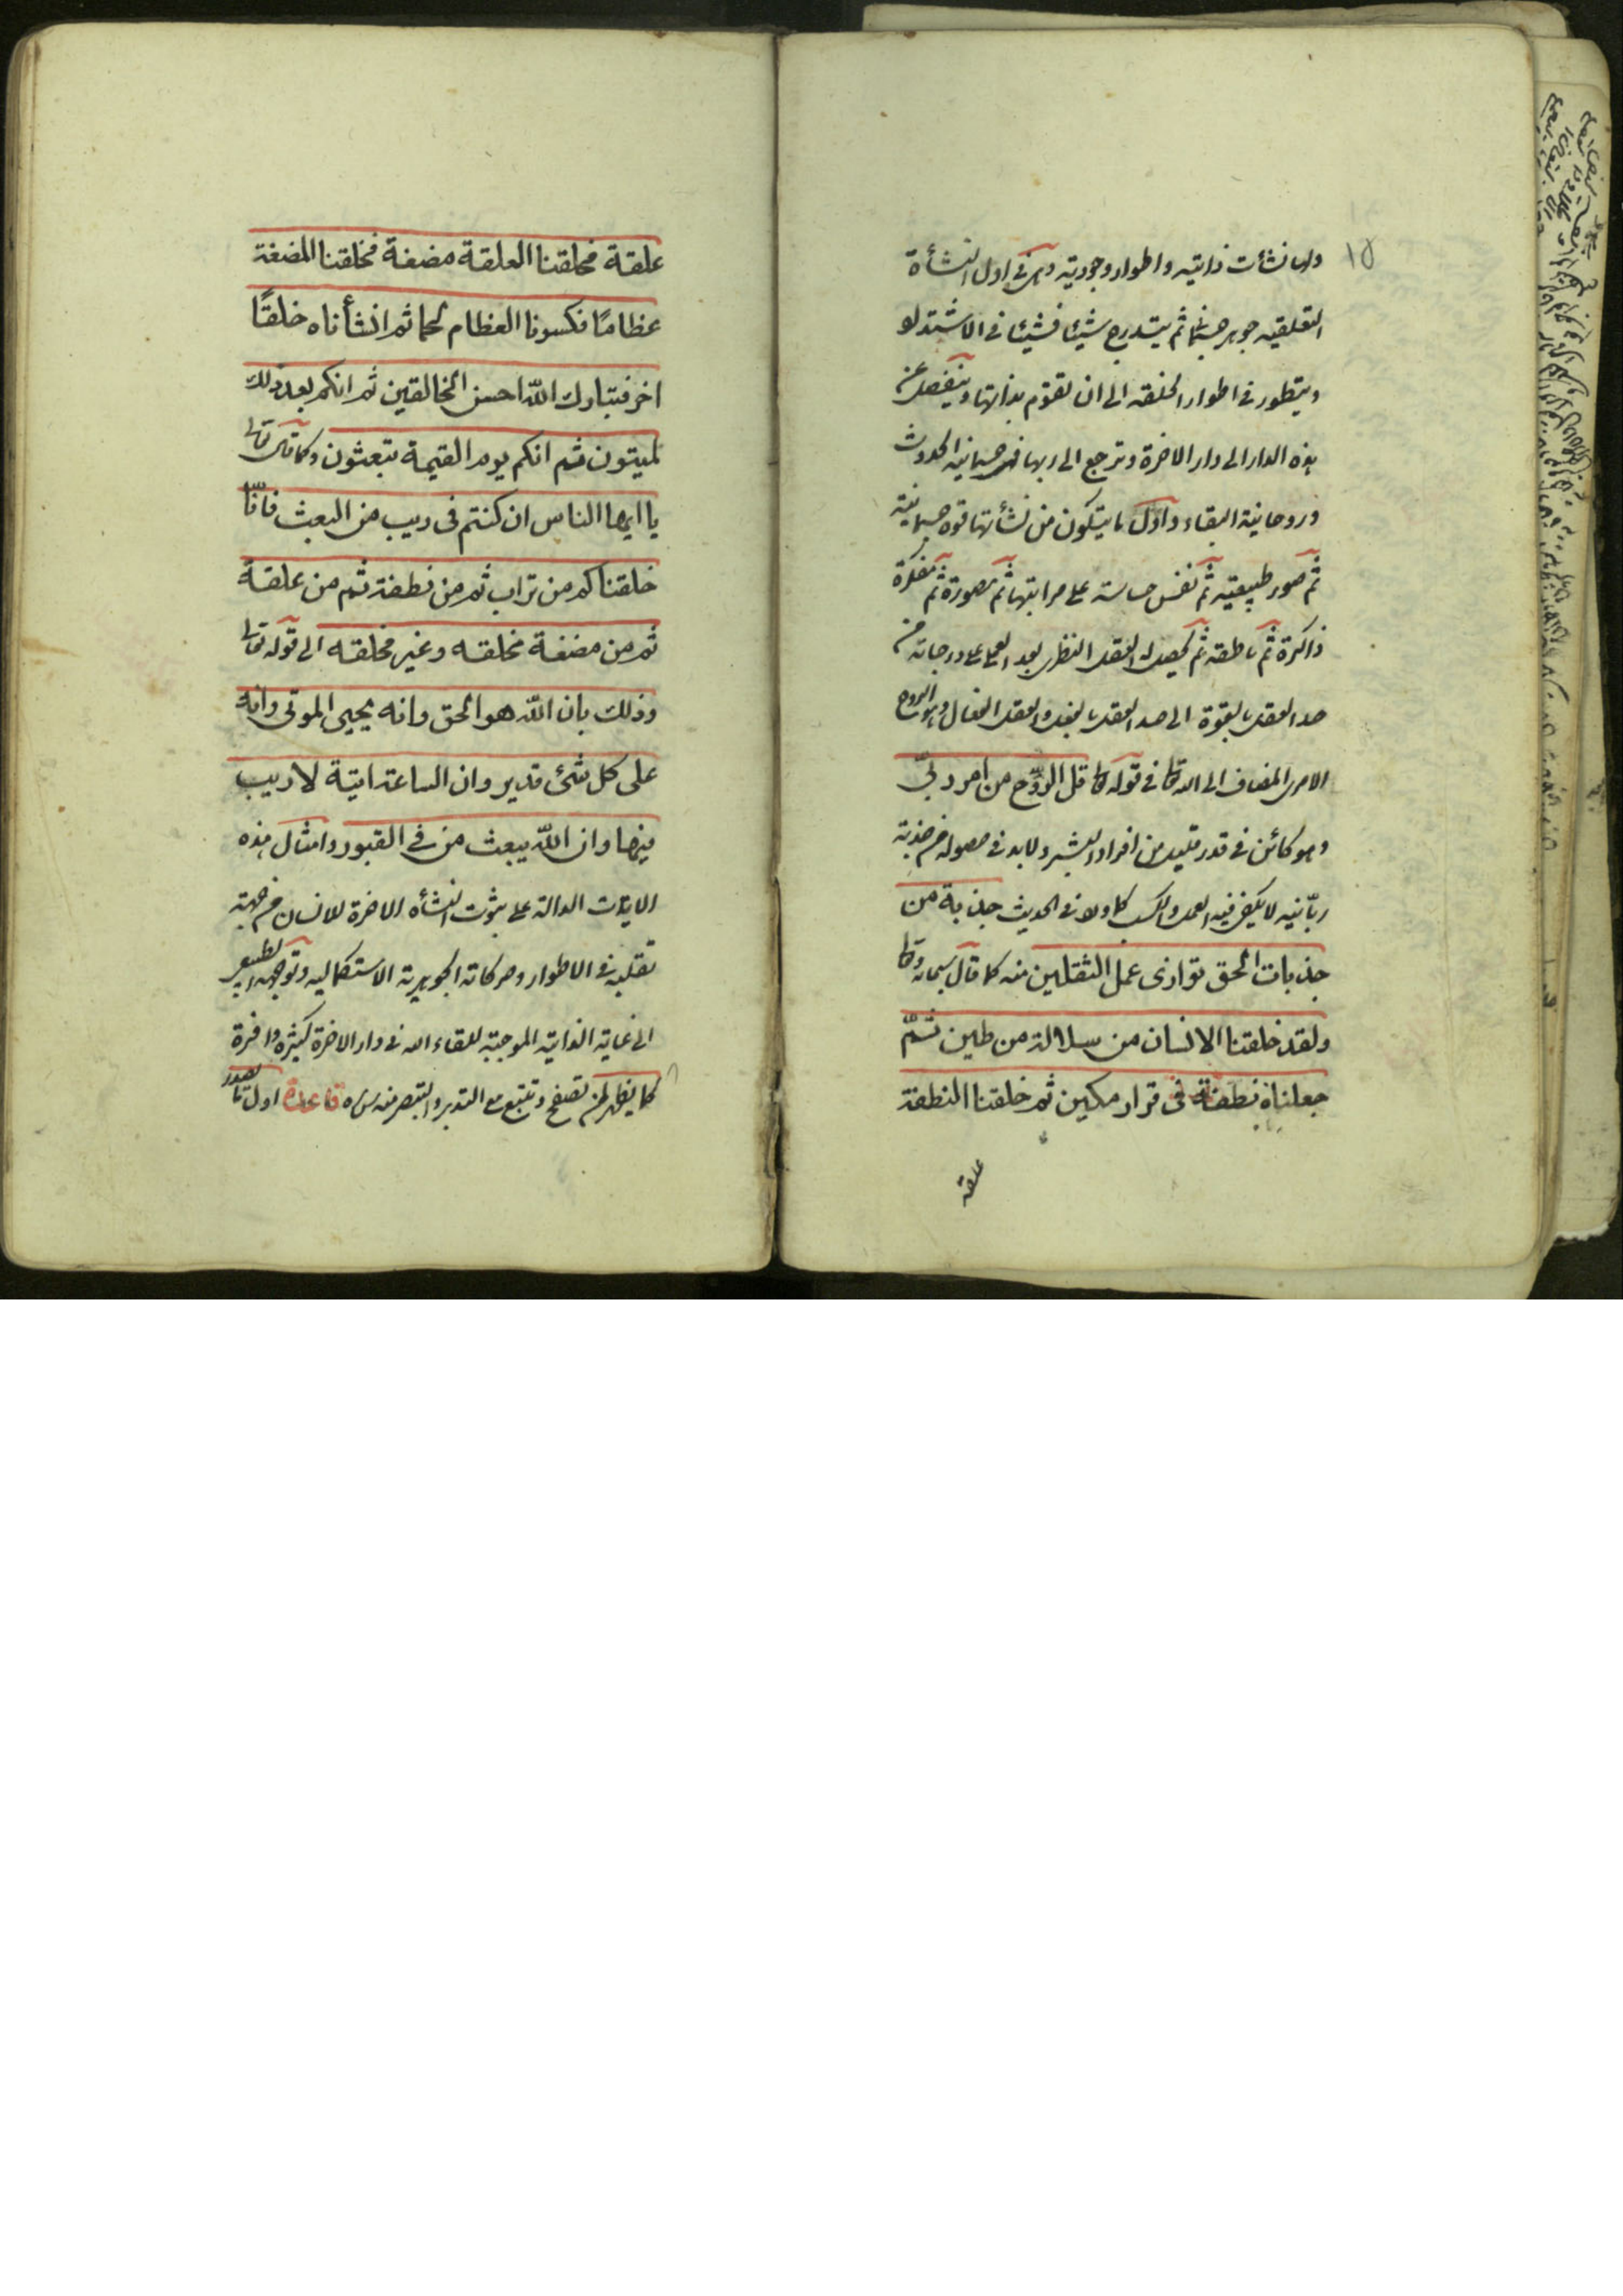 ١٥
ولها نشأت ذاتيه واطوار وجوديه وهى فى اول النشأة
التعلقيه جوهر جسمانى ثم يتدرج شيئا فشيئا فى الاشتداد
ويتطور فى اطوار الخلقه الى ان تقوم بذاتها وينفصل عن
هذه الدار الى دار الاخرة وترجع الى ربها فهى جسمانيه الحدوث
وروحانية البقاء واول ما يتكون من نشأتها قوة جسمانية
ثم صور طبيعيه ثم نفس حساسه على مراتبها ثم مصورة ثم مفكرة
ذاكرة ثم ناطقه ثم يحصل لها العقل النظرى بعد العملى على درجاته من
حد العقل بالقوة الى حد العقل بالفعل والعقل الفعال وهو الروح
الامرى المضاف الى الله تعالى فى قوله تعالى قل الروّح من امر ربّى
وهو كائن فى قدر قليل من افراد البشر ولا بد فى حصوله من جذبة
ربّانيه لا يكفى فيه العمل والكسب كما ورد فى الحديث جذبة من
جذبات الحق توازى عمل الثقلين منه كما قال سبحانه وتعالى
ولقد خلقنا الانسان من سلالة من طين ثمّ
جعلناه نطفة فى قرار مكين ثم خلقنا النطفة
علقة
علقة فخلقنا العلقة مضغة فخلقنا المضغة
عظامًا فكسونا العظام لحما ثم انشأناه خلقًا
اخر فتبارك الله احسن الخالقين ثم انكم بعد ذلك
لميتون ثم انكم يوم القيمة تبعثون وكما قال تعالى
يا ايها الناس ان كنتم فى ريب من البعث فانّا
خلقناكم من تراب ثم من نطفة ثم من علقة
ثم من مضغة مخلقه وغير مخلقه الى قوله تعالى
وذلك بان الله هو الحق وانه يحيى الموتى وانه
على كل شئ قدير وان الساعة اتية لا ريب
فيها وان الله يبعث من فى القبور وامثال هذه
الايات الداله على ثبوت النشأه الاخرة للانسان من جهة
تقلبه فى الاطوار وحركاته الجوهرية الاستكماليه وتوجهه الطبيعى
الى غاية الذاتيه الموجبه للقاء الله فى دار الاخرة كثيره وافرة
كما يظهر لمن تصفح وتتبع مع التدبر والتبصر قاعدة اول ما تصور